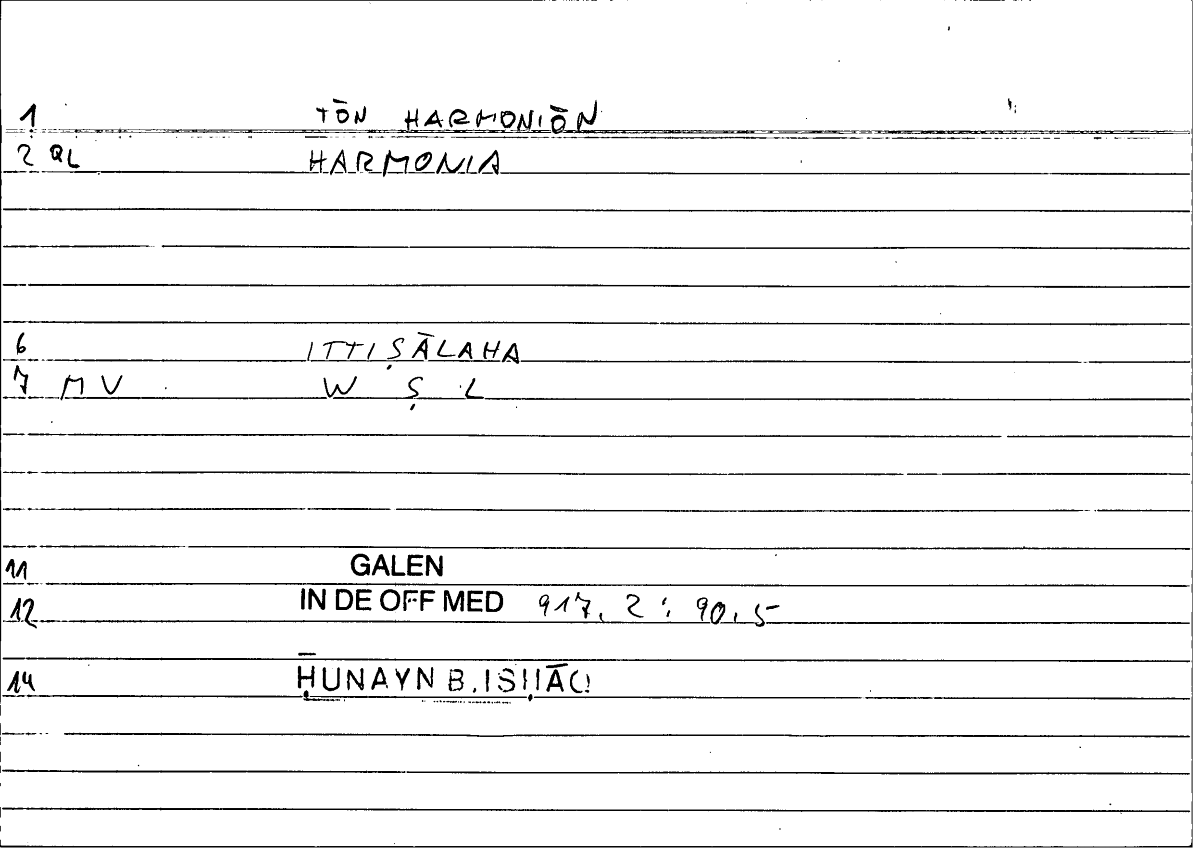 1 TŌN HARMONIŌN
2 QL HARMONIA
6 ITTIṢĀLAHA
7 MV W Ṣ L
11 GALEN
12 IN DE OFF MED 917, 2 : 90, 5
14 ḤUNAYN B. ISḤĀQ